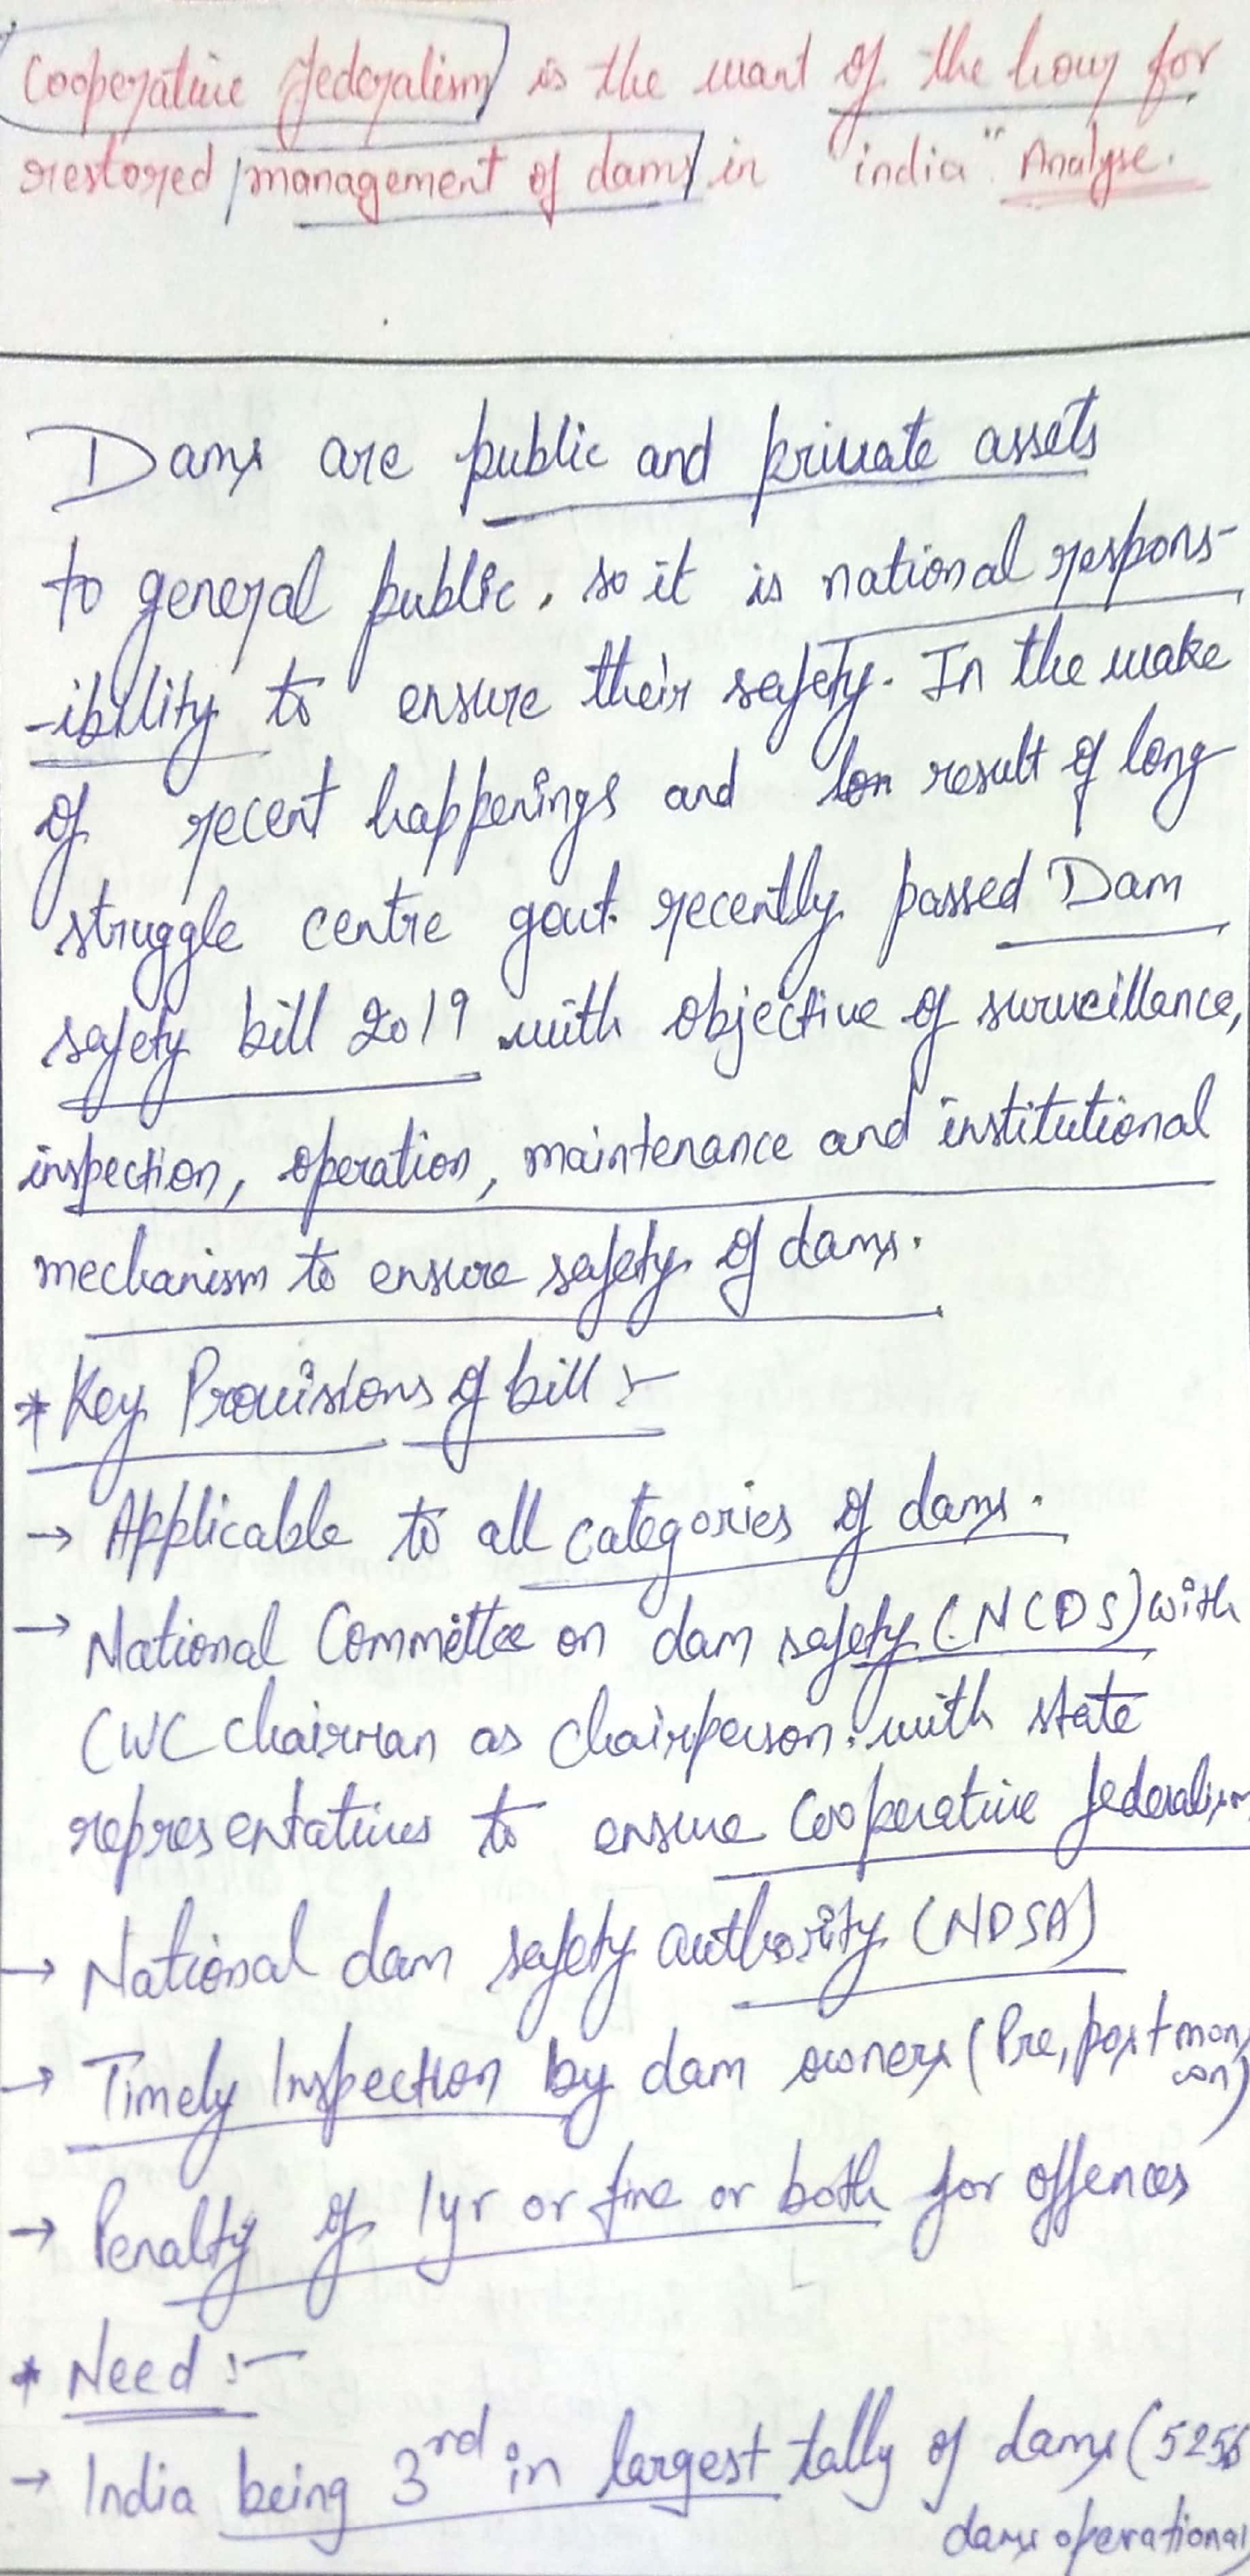 Cooperative federalism is the want of the hour for
restored management of dams in "india". Analyse.
Dams are public and private assets
to general public. so it is national respons-
-ibility to ensure their safety. In the wake
of recent happenings and result of long
struggle centre govt. recently passed Dam
safety bill 2019 with objective of surveillance,
inspection, operation, maintenance and institutional
mechanism to ensure safety of dams.
* Key Provisions of bill :-
→ Applicable to all categories of dams.
→ National Committee on dam safety (NCDS) with
CWC chairman as chairperson. with state
representatives to ensure cooperative federalism
→ National dam safety authority (NDSA)
→ Timely Inspection by dam owners (Pre, post mon
soon)
→ Penalty of 1yr or fine or both for offences
* Need :-
→ India being 3rd in largest tally of dams (5256
dams operational)